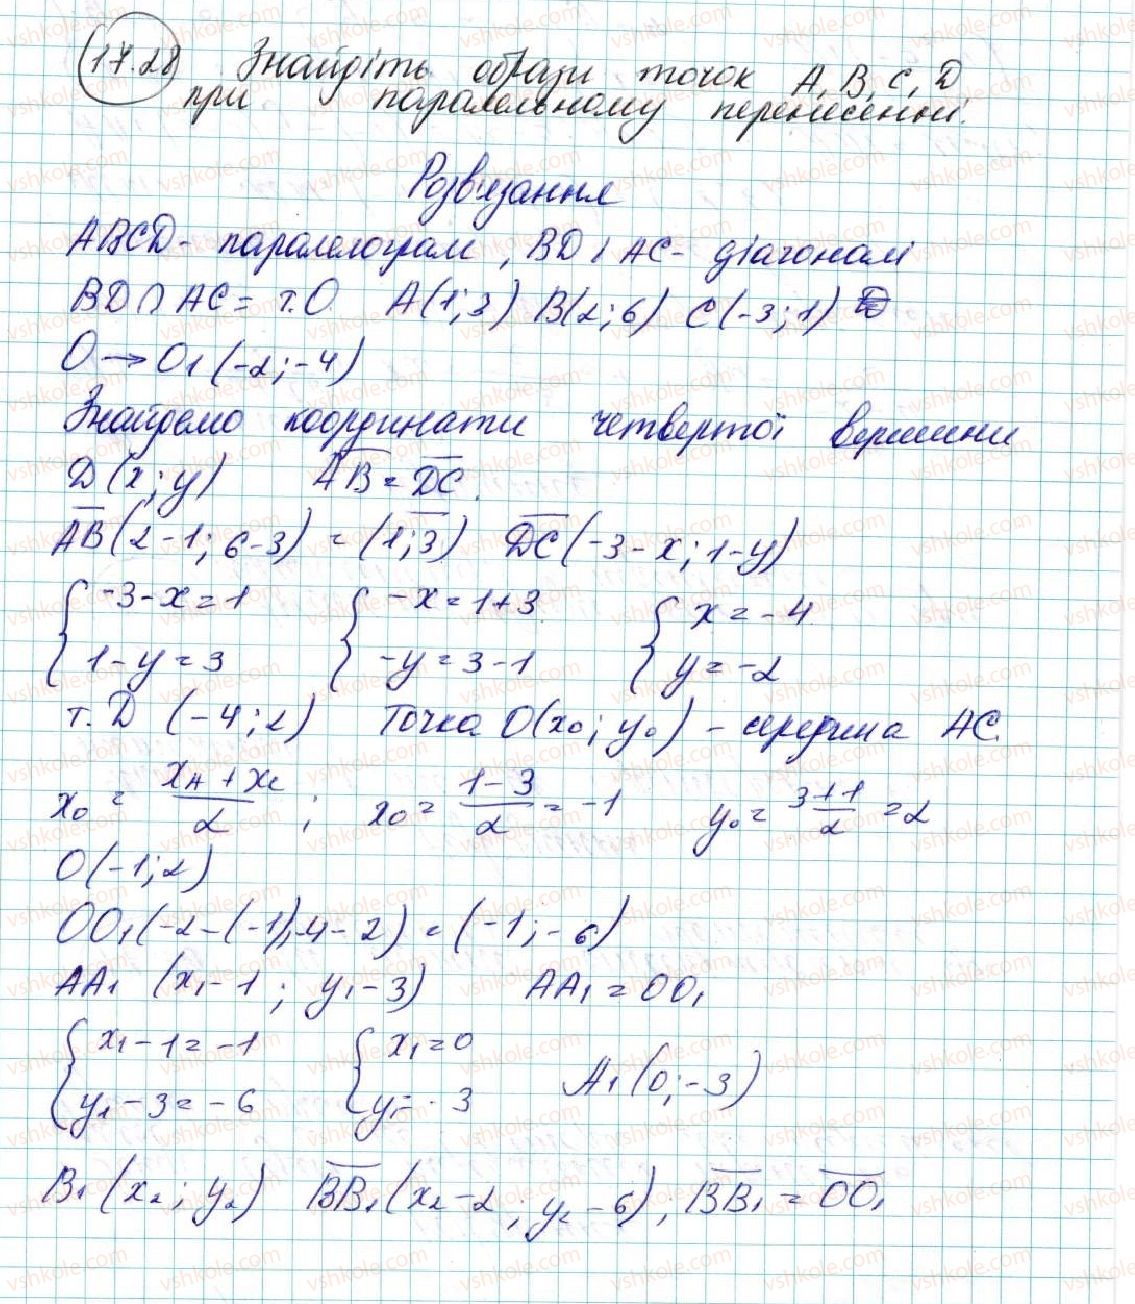 17.28 Знайдіть образи точок A, B, C, D
при паралельному перенесенні.
Розв'язання
ABCD - паралелограм, BD і AC - діагоналі
BD ∩ AC = т.O A(1;3) B(2;6) C(-3;1)
O → O₁ (-2;-4)
Знайдемо координати четвертої вершини
D (x; y) AB = DC.
AB (2-1; 6-3) = (1;3) DC (-3-x; 1-y)
{-3-x=1 {-x=1+3 {x=-4
1-y=3 -y=3-1 y=-2
т. D (-4;2) Точка O(x₀; y₀) - середина AC.
x₀ = (xA + xC)/2 ; x₀ = (1-3)/2 = -1 y₀ = (3+1)/2 = 2
O(-1;2)
OO₁(-2-(-1);-4-2) = (-1;-6)
AA₁ (x₁-1; y₁-3) AA₁ = OO₁
{x₁-1=-1 {x₁=0 A₁ (0;-3)
y₁-3=-6 y₁=-3
B₁ (x₂; y₂) BB₁(x₂-2; y₂-6); BB₁ = OO₁